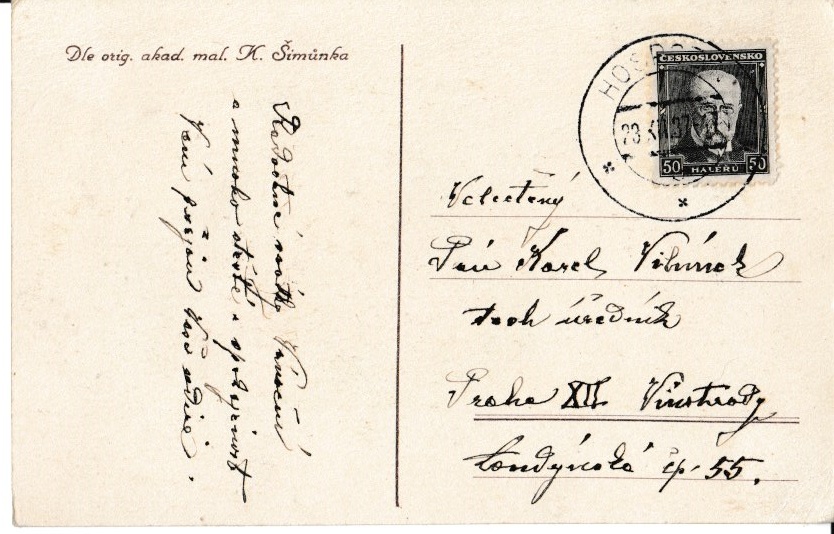 Dle orig. akad. mal. K. Šimůnka
Radostné svátky Vánoční
a mnoho štěstí a spokojenost
Vám přejou Vaši
ČESKOSLOVENSKO
50 HALÉŘŮ 50
Velectěný
Pán Karel
tech úředník
Praha XII Vinohrady
Londýnská čp. 55.